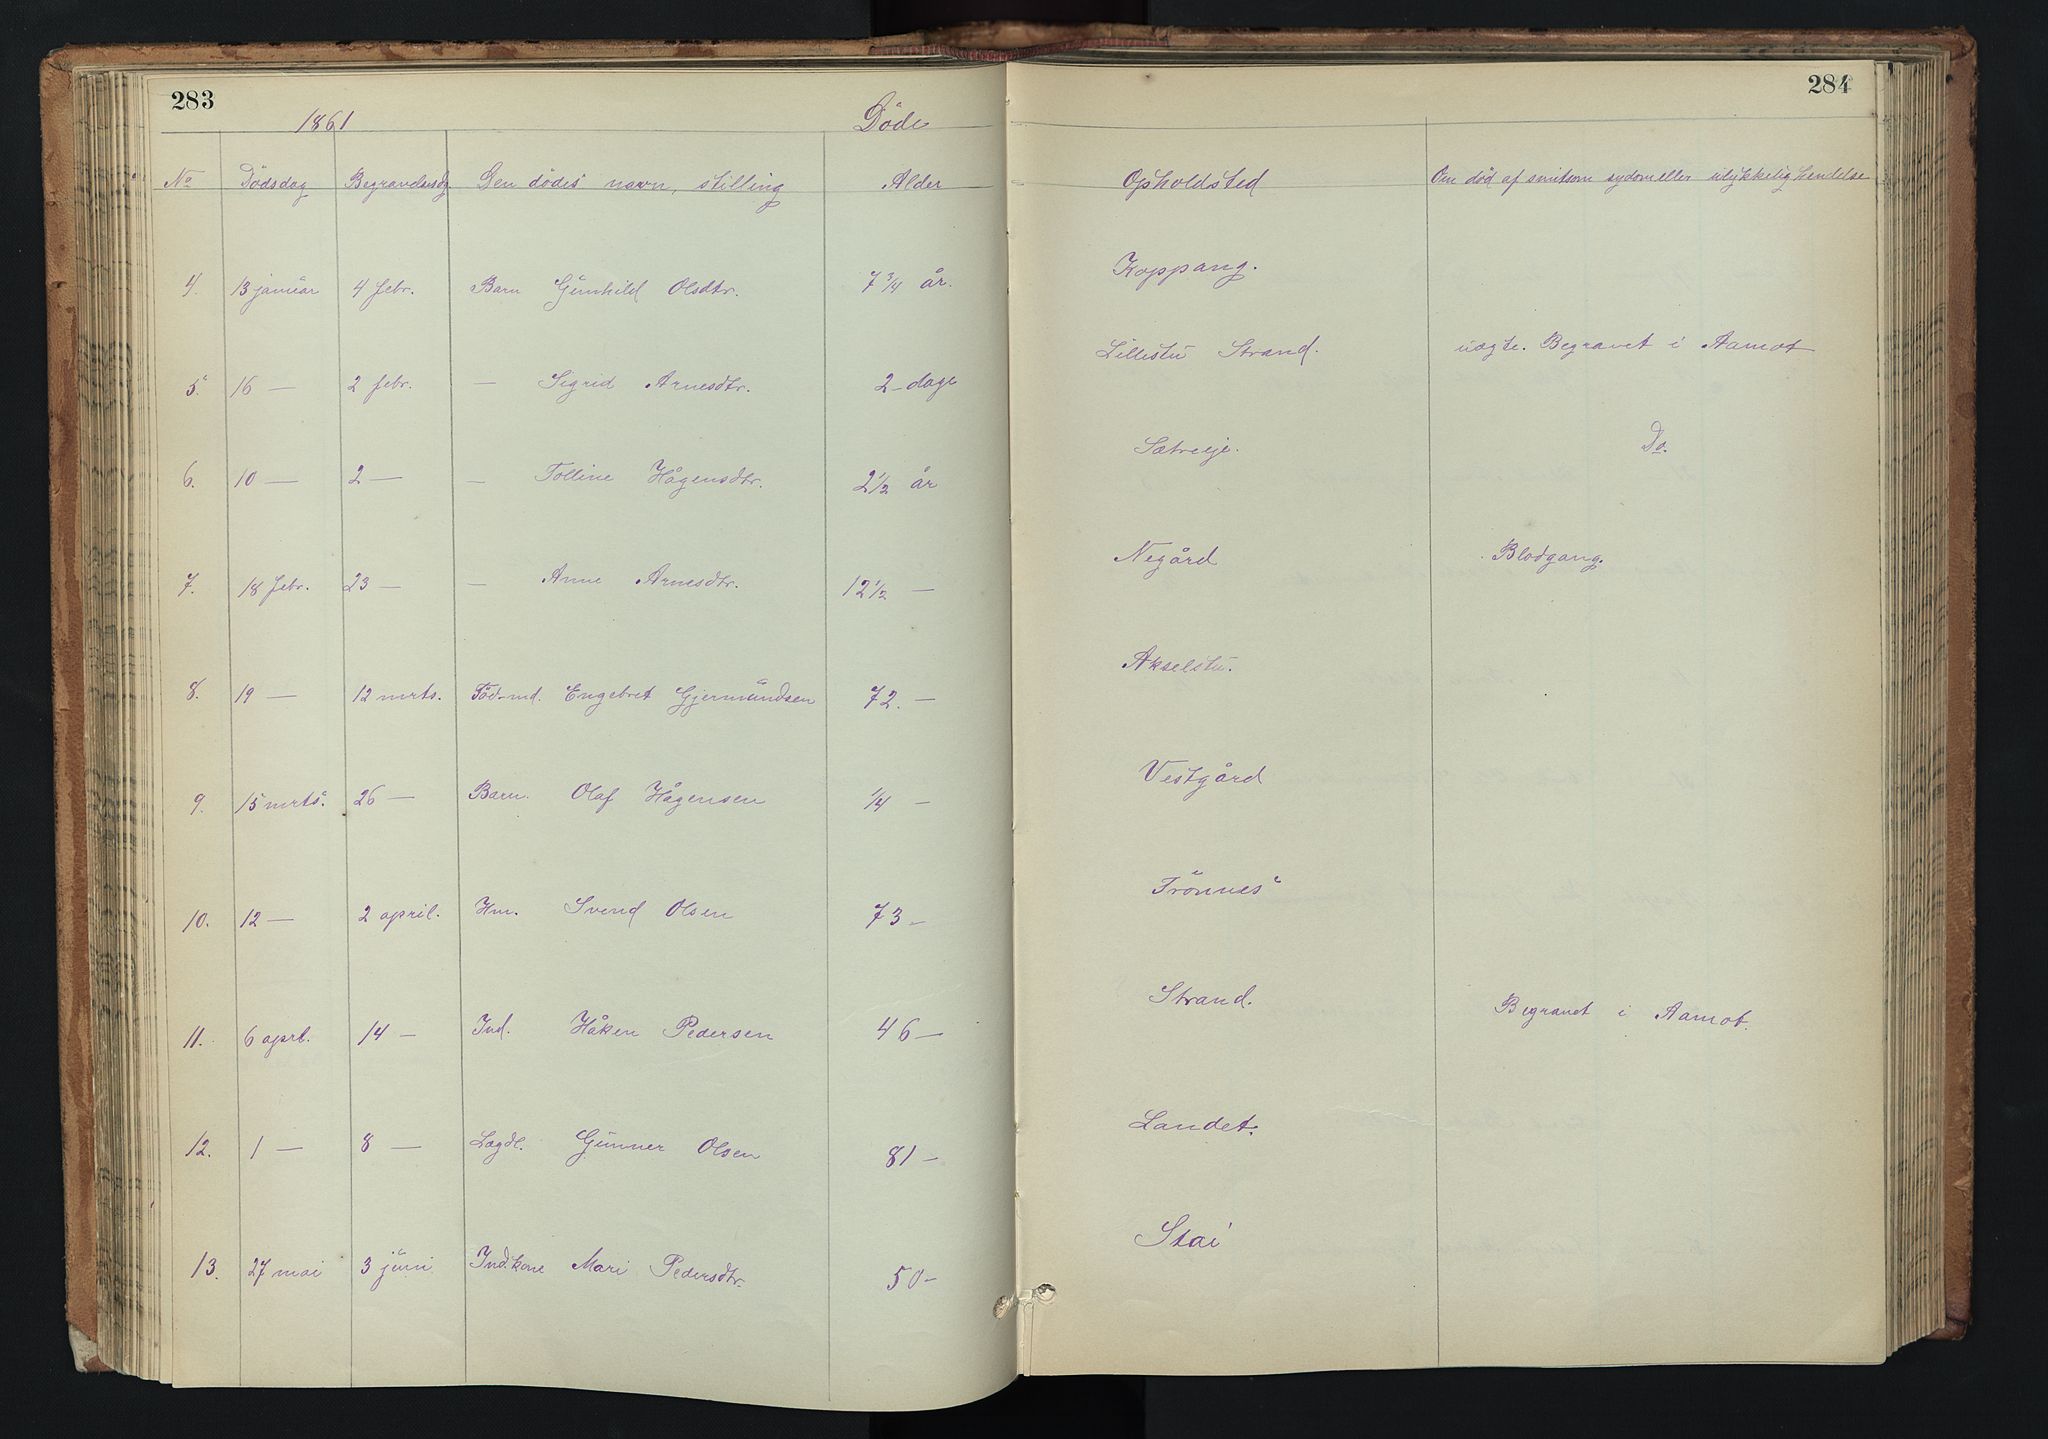 283
1861 Döde
No Dödsdag Begravelsesdg Den dödes navn, stilling Alder
4. 13 januar 4 febr. Barn Gunhild Olsdtr. 7 3/4 år.
5. 16 — 2 febr. — Sigrid Arnesdtr. 2 dage
6. 10 — 2 — — Tolline Hågensdtr. 2 1/2 år
7. 18 febr. 23 — — Anne Arnesdtr. 12 1/2 —
8. 19 — 12 mrts. Föd-md. Engebret Gjermundsen 72. —
9. 15 mrts. 26 — Barn. Olaf Hågensen 1/4 —
10. 12 — 2 april. Hm. Svend Olsen 73 —
11. 6 aprl. 14 — Ind. Håken Pedersen 46 —
12. 1 — 8 — Lægdl. Gunner Olsen 81 —
13. 27 mai 3 juni Ind.kone Mari Pedersdtr. 50 —
284
Opholdsted Om död af smitsom sydom eller ulykkelig hendelse
Koppang.
Lillestu Strand. uægte. Begravet i Aamot
Sætreeje. Do.
Negård Blodgang.
Akselstu.
Vestgård
Trönnes
Strand. Begravet i Aamot.
Landet.
Stai